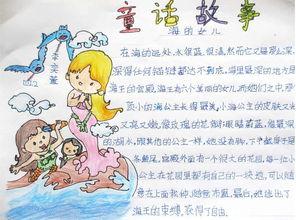 童话故事
海的女儿
在海的远处,水很蓝,很清,然而它又是那么深,
深得任何锚链都达不到底。海里最深的地方是
海王的宫殿,海王有六个美丽的女儿,而她们之中,那
顶小的海公主长得最美,小海公主的皮肤又光
又亮又嫩,像玫瑰的花瓣,眼睛蔚蓝,像最深
的湖水,跟其他的公主一样,她没有脚,下身都是
条鱼尾。宫殿外面有一个很大的花园,每一位小
公主在花园里都有自己的一块地,可以随
意在上面栽种
海王的束缚,获得了自由。